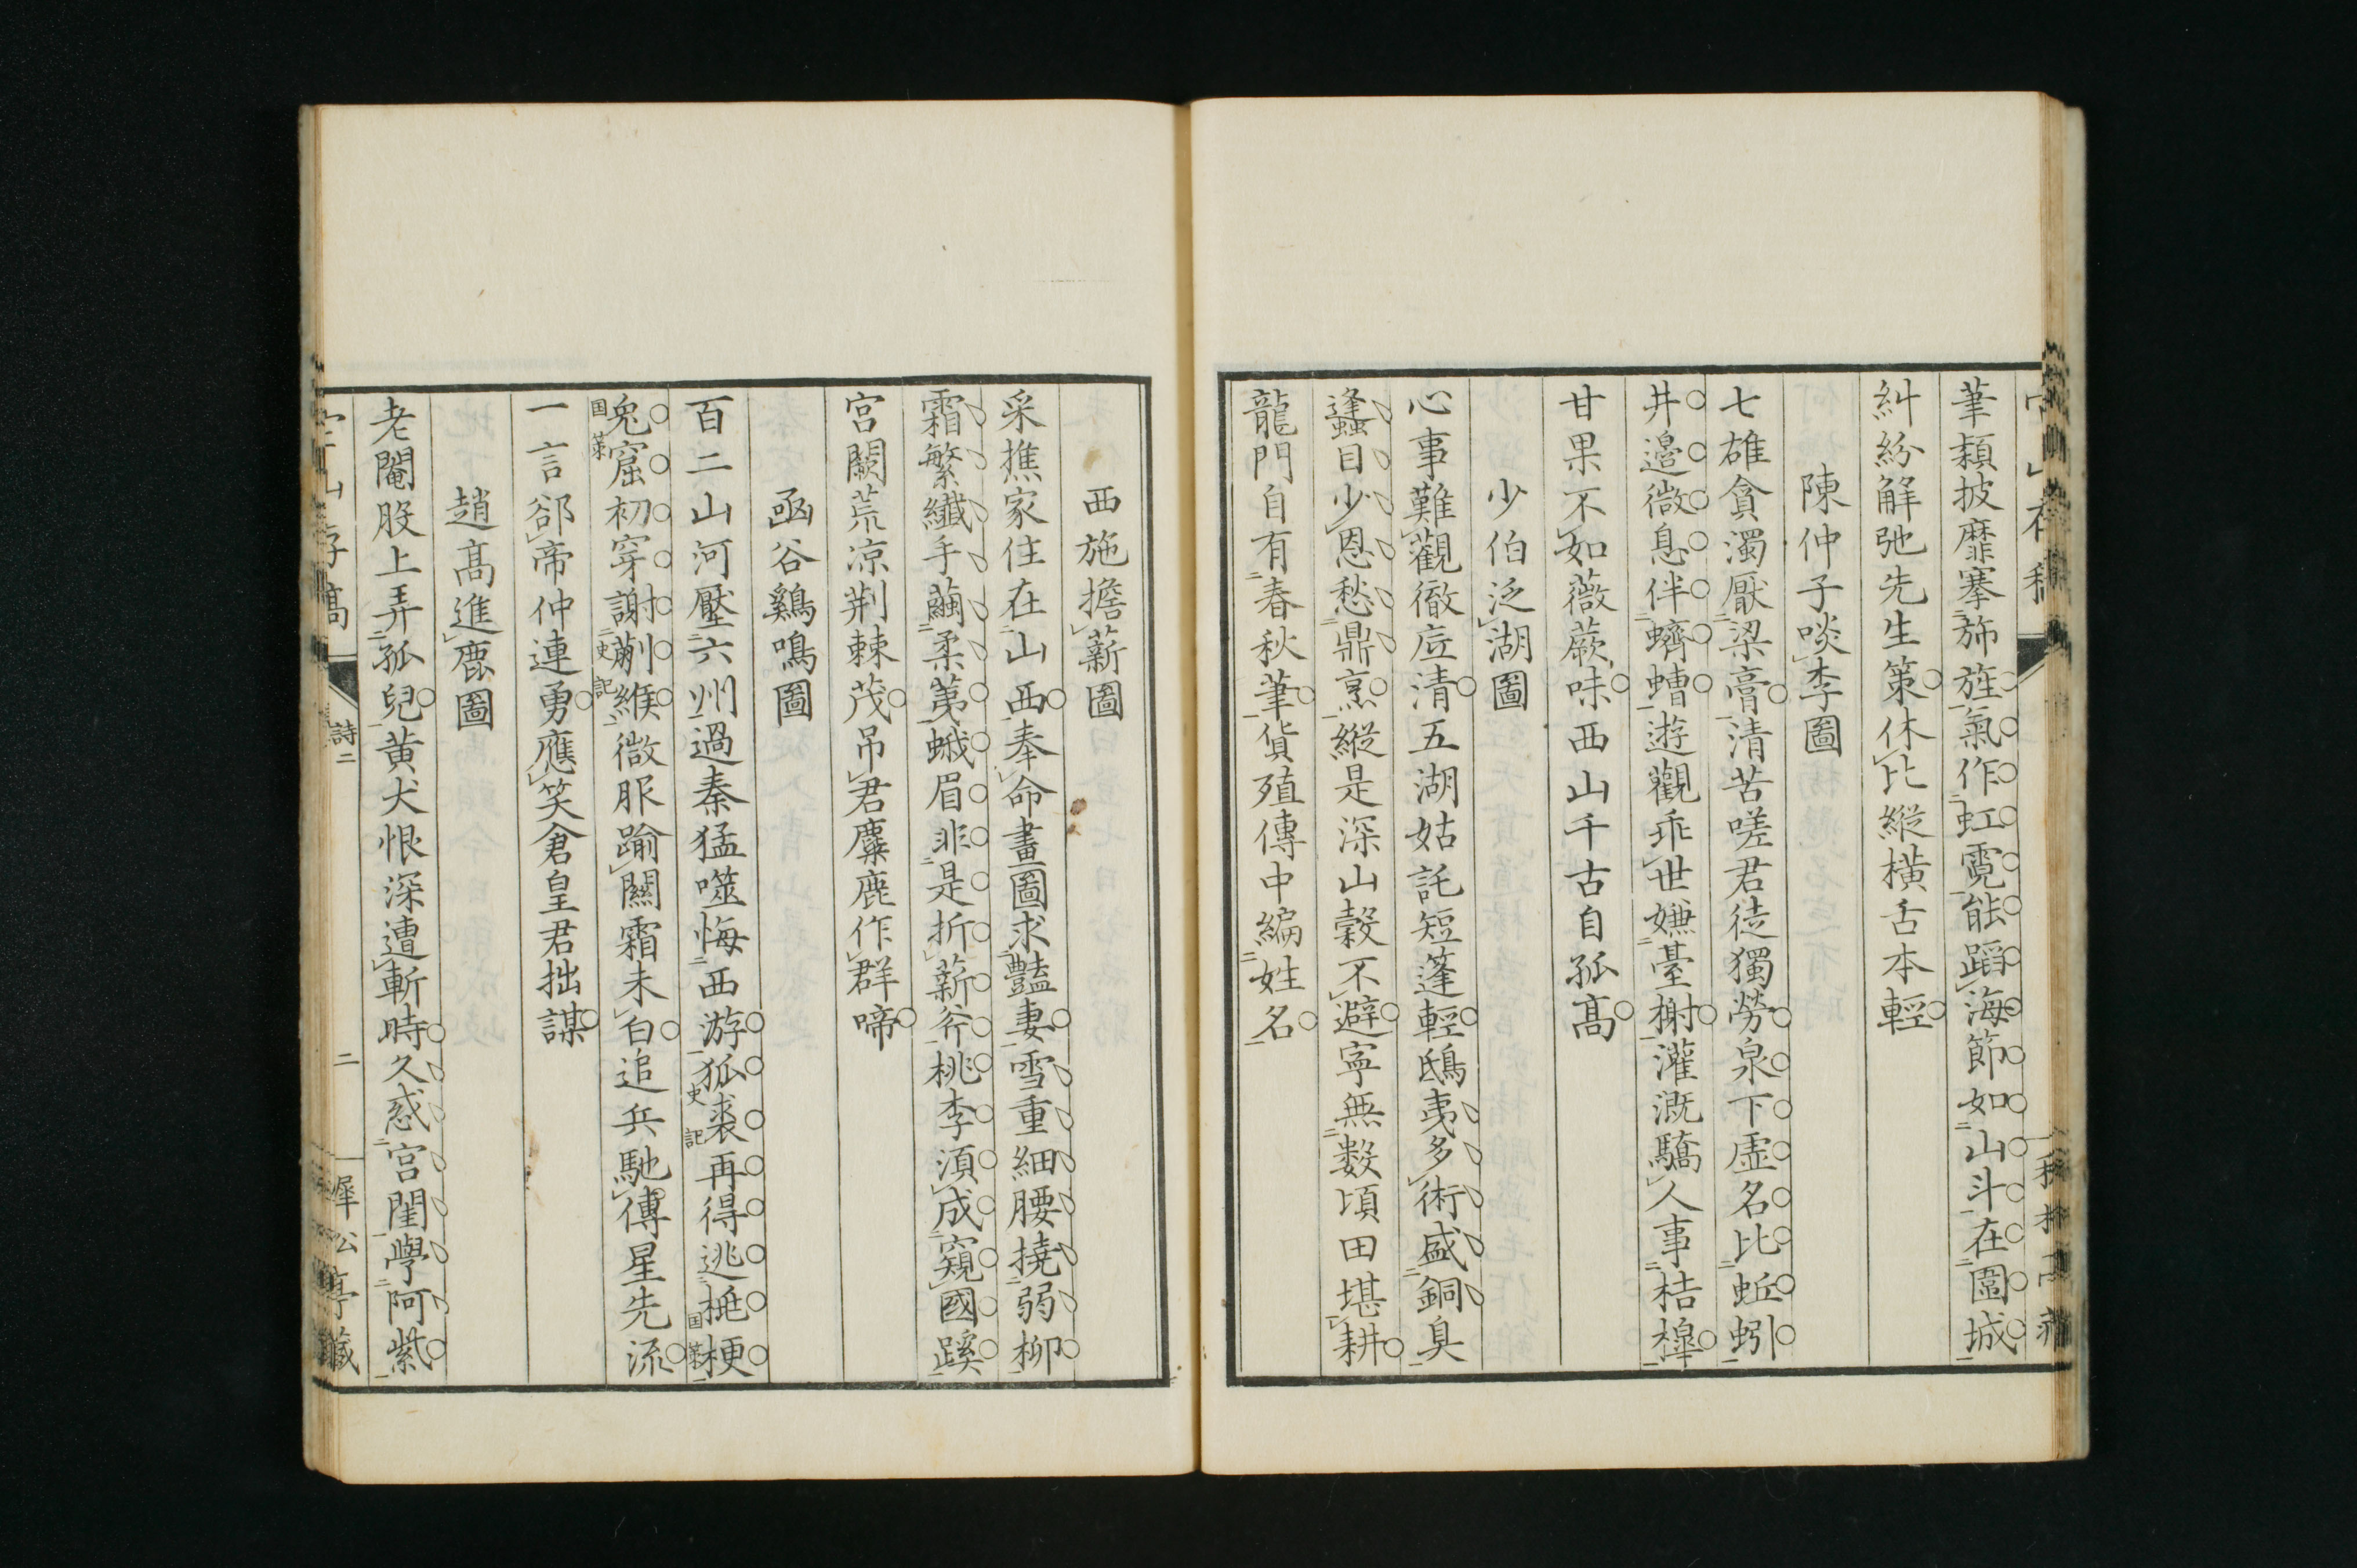 筆頴披靡搴旆旌氣作虹霓能蹈海節如山斗在圍城
糾紛解弛先生策休比縱橫舌本輕
陳仲子啖李圖
七雄貪濁厭梁膏清苦嗟君徒獨勞泉下虛名比蚯蚓
井邉微息伴蠐螬遊觀乖世嫌臺榭灌漑驕人事桔槹
甘果不如薇蕨味西山千古自孤髙
少伯泛湖圖
心事難觀徹底清五湖姑託短蓬輕鴟夷多術盛銅臭
蠭目少恩愁鼎烹縱是深山榖不避寧無数頃田堪耕
龍門自有春秋筆貨殖傳中編姓名
西施擔薪圖
采樵家住在山西奉命畫圖求豔妻雪重細腰撓弱柳
霜繁纖手繭柔荑蛾眉非是折薪斧桃李湏成窺國蹊
宮闕荒凉荆棘茂吊君麋鹿作群啼
函谷鷄鳴圖
百二山河壓六州過秦猛噬悔西游狐裘再得逃梃梗
史記
国策
兔窟初穿謝蒯緱微服踰關霜未白追兵馳傳星先流
国策
史記
一言郤帝仲連勇應笑倉皇君拙謀
趙髙進鹿圖
老閹股上弄孤兒黃犬恨深遭斬時久惑宮闈學阿紫
詩二
二
犀公亭藏